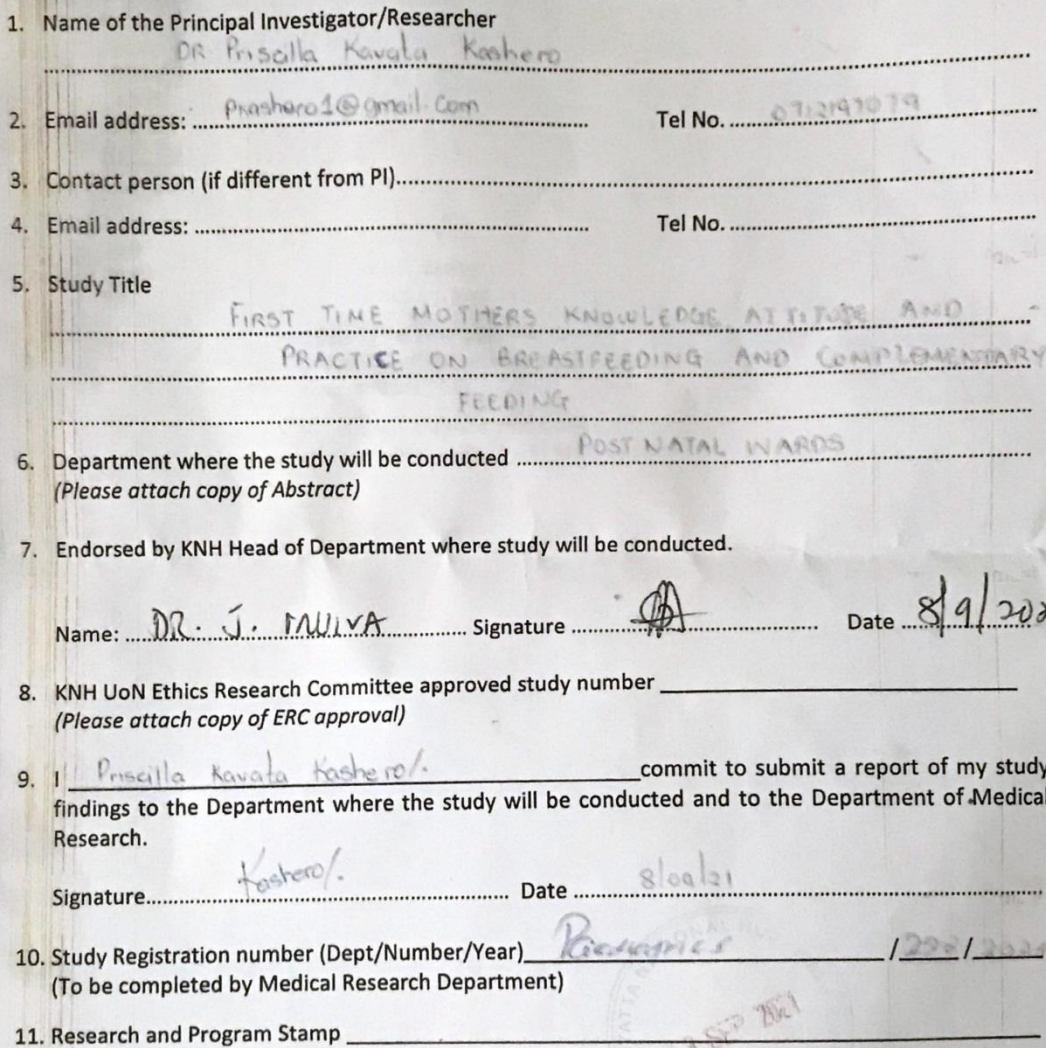 1. Name of the Principal Investigator/Researcher
DR Priscilla Kavata Kashero
2. Email address: Pkashero1@gmail.com Tel No.
3. Contact person (if different from PI)
4. Email address: Tel No.
5. Study Title
FIRST TIME MOTHERS KNOWLEDGE ATTITUDE AND
PRACTICE ON BREASTFEEDING AND COMPLEMENTARY
FEEDING
6. Department where the study will be conducted POST NATAL WARDS
(Please attach copy of Abstract)
7. Endorsed by KNH Head of Department where study will be conducted.
Name: DR. J. Signature Date 8/9/202
8. KNH UoN Ethics Research Committee approved study number
(Please attach copy of ERC approval)
9. I Priscilla Kavata Kashero/. commit to submit a report of my study
findings to the Department where the study will be conducted and to the Department of Medical
Research.
Signature Kashero/. Date 8/09/21
10. Study Registration number (Dept/Number/Year) Paediatrics / /
(To be completed by Medical Research Department)
11. Research and Program Stamp
SEP 2021